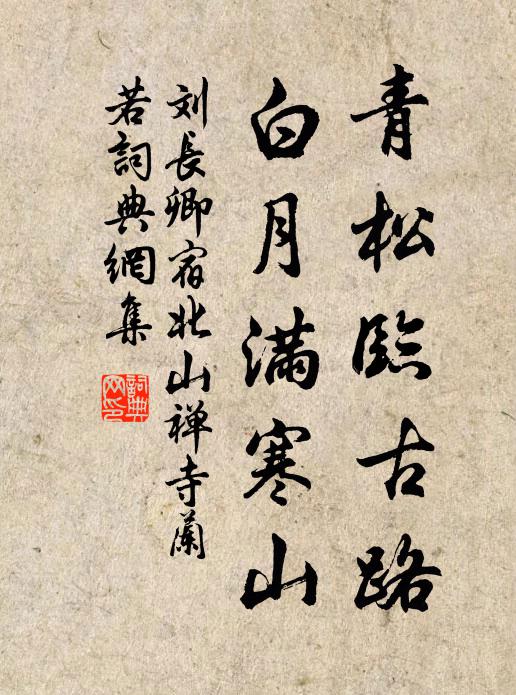 青松臨古路
白月滿寒山
刘長卿宿北山禅寺蘭
若詞典網集
詞典
网印